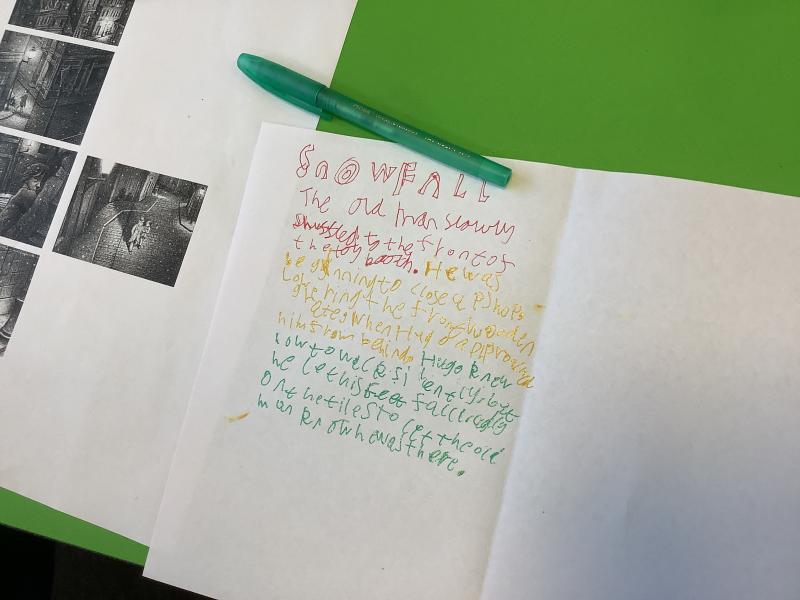 SnOWFALL
The old man slowly
shuffled to the front of
the toy booth. He was
beginning to close up shop,
lowering the front wooden
gates when Hugo approached
him from behind. Hugo knew
how to walk silently, but
he let his feet fall loudly
on the tiles to let the old
man know he was there.